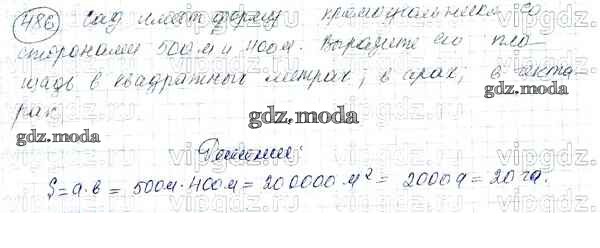 486 Сад имеет форму прямоугольника со
сторонами 500 м и 400 м. Выразите его пло-
щадь в квадратных метрах; в арах; в гекта-
рах.
gdz.moda
gdz.moda
gdz.moda
Решение:
S = a · b = 500 м · 400 м = 200000 м² = 2000 а = 20 га.
vipgdz